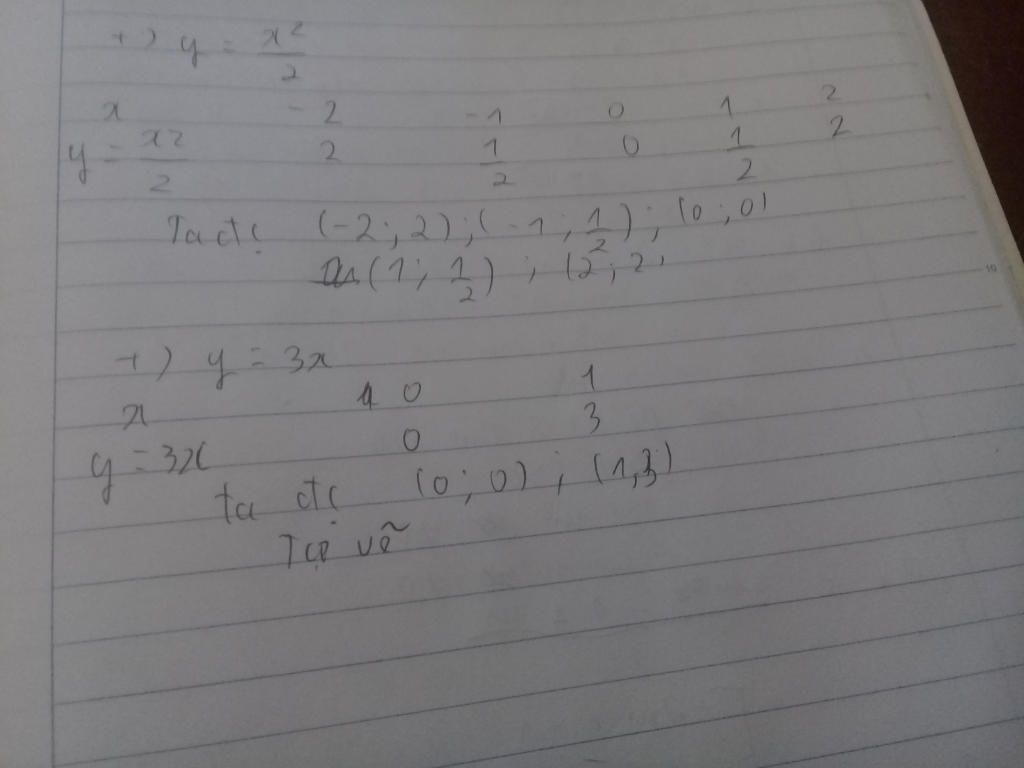 +) y = x²/2
x -2 -1 0 1 2
y = x2/2 2 1/2 0 1/2 2
Ta cđ: (-2; 2); (-1; 1/2); (0; 0)
(1; 1/2); (2; 2)
+) y = 3x
x 0 1
y = 3x 0 3
ta cđ: (0; 0); (1; 3)
Tự vẽ
10